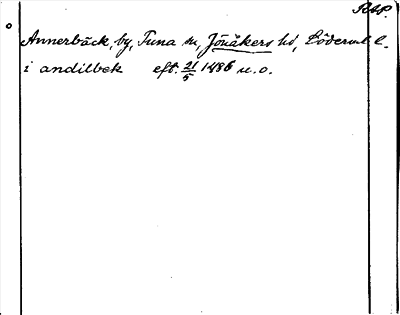 Rbp.
Annerbäck, by, Tuna sn, Jönåkers hd, Söderml l.
i andilbek eft. 21/5 1486 u.o.